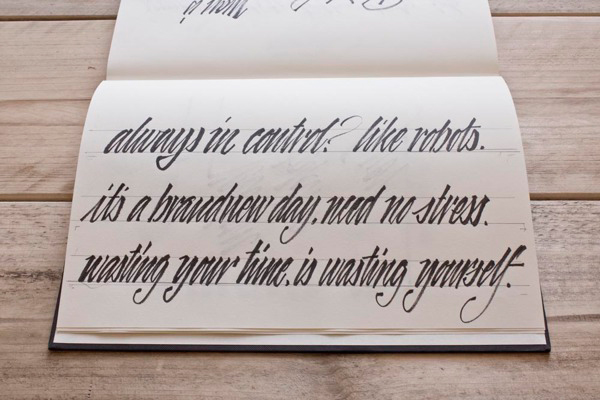 always in control? like robots.
it's a brandnew day, need no stress.
wasting your time, is wasting yourself.